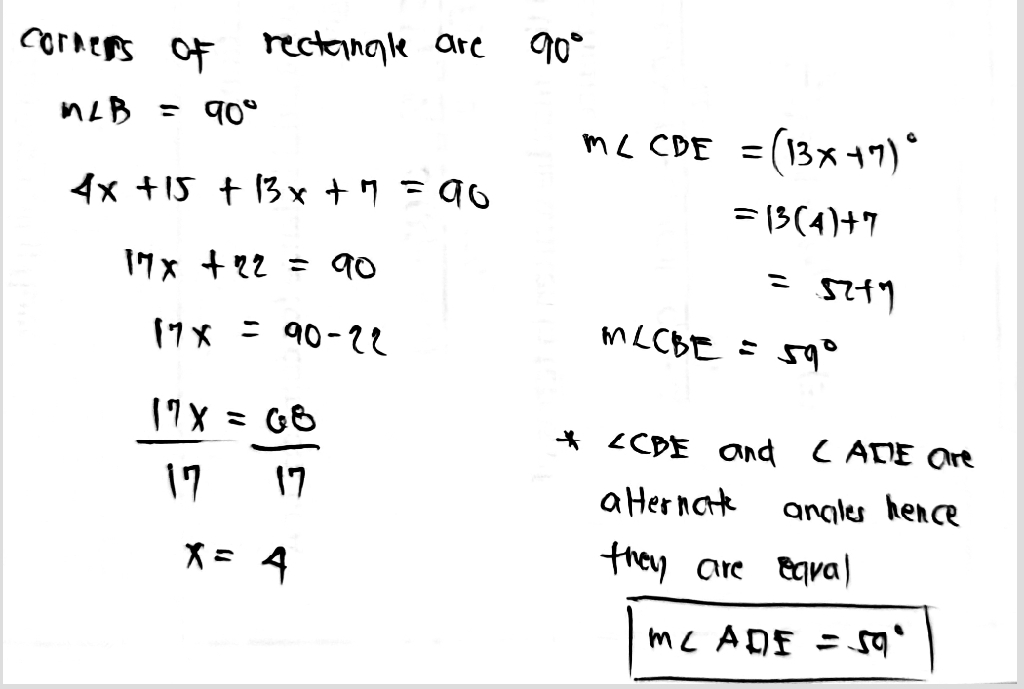 corners of rectangle are 90°
m∠B = 90°
4x + 15 + 13x + 7 = 90
17x + 22 = 90
17x = 90 - 22
17x = 68
17 17
x = 4
m∠CBE = (13x + 7)°
= 13(4) + 7
= 52 + 7
m∠CBE = 59°
* ∠CBE and ∠ADE are
alternate angles hence
they are equal
m∠ADE = 59°